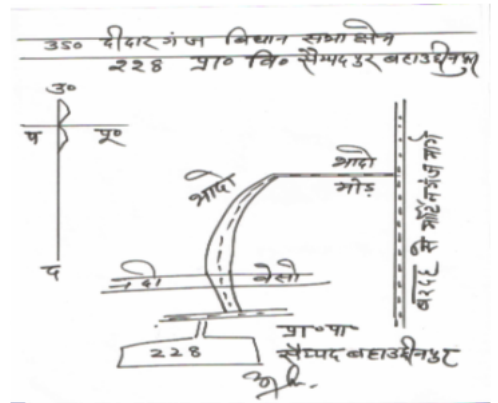 350 दीदार गंज विधान सभा क्षेत्र
228 प्रा० वि० सैय्यदपुर बहाउद्दीनपुर
उ०
प पू०
द
भादो
भादो
मोड़
बरदह से मार्टिनगंज मार्ग
नदी बेसो
प्रा० पा०
सैय्यद बहाउद्दीनपुर
228